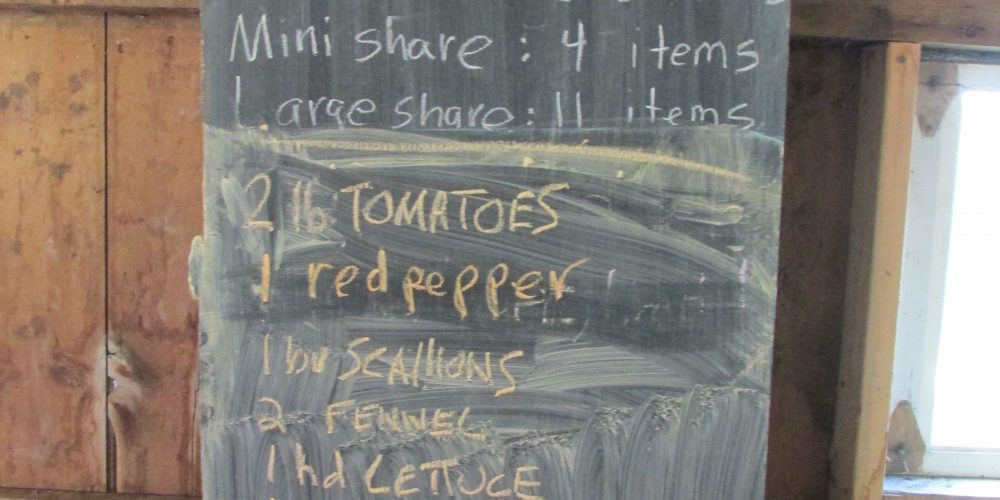 Mini share : 4 items
Large share : 11 items
2 lb TOMATOES
1 red pepper
1 bu SCALLIONS
2 FENNEL
1 hd LETTUCE